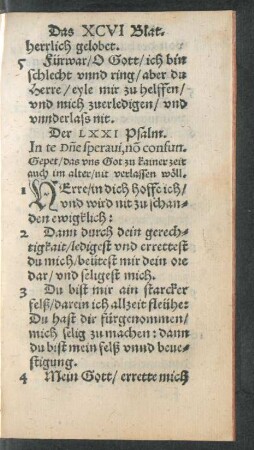 Das XCVI Blat.
herrlich gelobet.
5 Fürwar/ O Gott/ ich bin
schlecht vnnd ring/ aber du
Herre/ eyle mir zu helffen/
vnd mich zuerledigen/ vnd
vnnderlaß nit.
Der LXXI Psalm.
In te Dñe speraui, nõ confun.
Gepet/ das vns Got zu kainer zeit
auch im alter/ nit verlassen wöll.
1 HErre/ in dich hoffe ich/
vnd wird nit zu schan-
den ewigklich:
2 Dann durch dein gerech-
tigkait/ ledigest vnd errettest
du mich/ beütest mir dein ore
dar/ vnd seligest mich.
3 Du bist mir ain starcker
felß/ darein ich allzeit fleühe:
Du hast dir fürgenommen/
mich selig zu machen: dann
du bist mein felß vnnd beue-
stigung.
4 Mein Gott/ errette mich